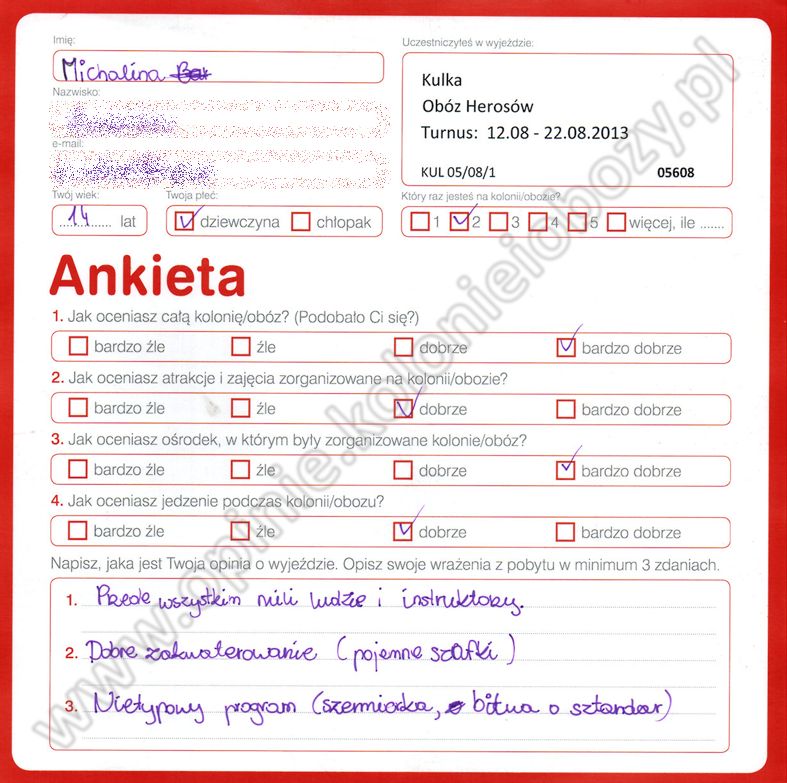 Imię:
Michalina
Nazwisko:
e-mail:
Twój wiek:
14 lat
Twoja płeć:
dziewczyna chłopak
Uczestniczyłeś w wyjeździe:
Kulka
Obóz Herosów
Turnus: 12.08 - 22.08.2013
KUL 05/08/1 05608
Który raz jesteś na kolonii/obozie?
1 2 3 4 5 więcej, ile .......
Ankieta
1. Jak oceniasz całą kolonię/obóz? (Podobało Ci się?)
bardzo źle źle dobrze bardzo dobrze
2. Jak oceniasz atrakcje i zajęcia zorganizowane na kolonii/obozie?
bardzo źle źle dobrze bardzo dobrze
3. Jak oceniasz ośrodek, w którym były zorganizowane kolonie/obóz?
bardzo źle źle dobrze bardzo dobrze
4. Jak oceniasz jedzenie podczas kolonii/obozu?
bardzo źle źle dobrze bardzo dobrze
Napisz, jaka jest Twoja opinia o wyjeździe. Opisz swoje wrażenia z pobytu w minimum 3 zdaniach.
1. Przede wszystkim mili ludzie i instruktorzy.
2. Dobre zakwaterowanie (pojemne szafki)
3. Nietypowy program (szermierka, bitwa o sztandar)
www.opinie.kolonieiobozy.pl